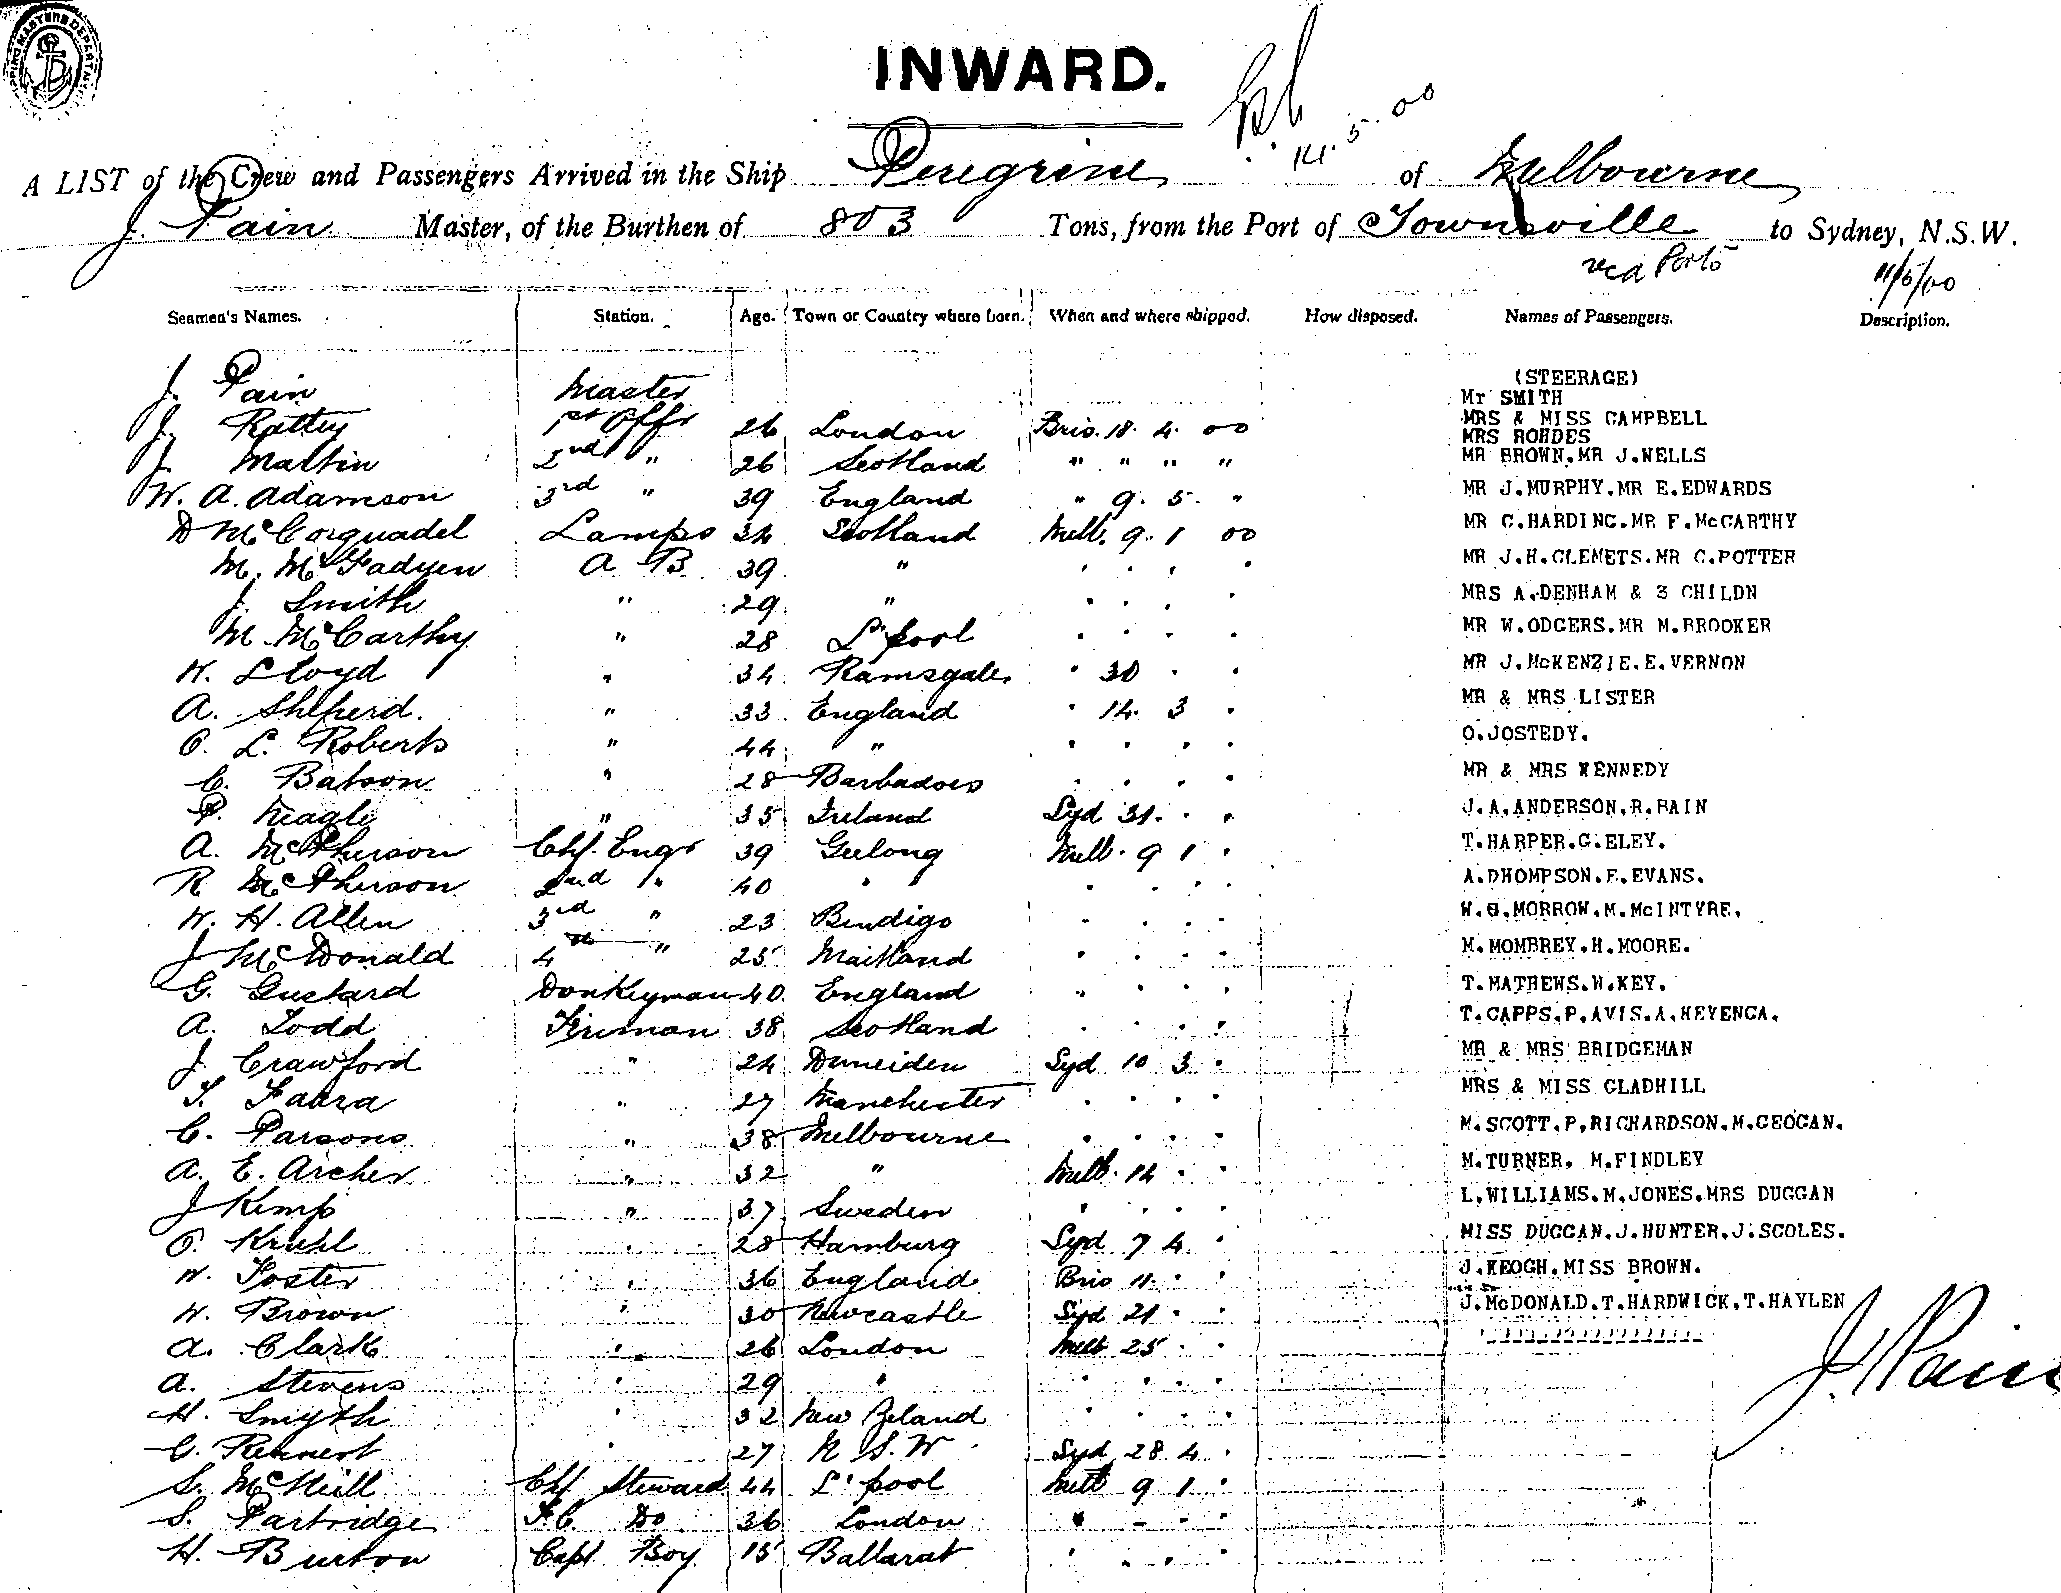 INWARD.
14.5.00
A LIST of the Crew and Passengers Arrived in the Ship Peregrine of Melbourne
J. Pain Master, of the Burthen of 803 Tons, from the Port of Townsville to Sydney, N.S.W.
via Ports 11/5/00
Seamen's Names. Station. Age. Town or Country where born. When and where shipped. How disposed. Names of Passengers. Description.
J. Pain Master
J. Rattey 1st Offr 26 London Bris. 18. 4. 00
J. Martin 2nd " 26 Scotland " " " "
W. A. Adamson 3rd " 39 England " 9. 5. "
D McCorquadel Lamps 34 Scotland Melb. 9. 1 00
M. McFadyen A B 39 " . . . .
J. Smith " 29 " . . . .
M. McCarthy " 28 L'pool . . . .
W. Lloyd " 34 Ramsgate " 30 . .
A. Sheperd. " 33 England " 14. 3 .
O. L. Roberts " 44 " . . . .
C. Batson " 28 Barbadoes . . . .
P. Neagle " 35 Ireland Syd 31. . .
A. McPherson Chf. Engr 39 Geelong Melb. 9 1 .
R McPherson 2nd " 40 " . . . .
W. H. Allen 3rd " 23 Bendigo . . . .
J McDonald 4th " 25 Maitland . . . .
G. Gustard Donkeyman 40 England " . . .
A. Todd Fireman 38 Scotland . . . .
J. Crawford " 24 Duneiden Syd 10 3 .
T. 27 Manchester . . . .
C. Parsons " 38 Melbourne . . . .
A. E. Archer " 32 " Melb. 14 . .
J Kemp " 37 Sweden . . . .
O. Kruhl " 28 Hamburg Syd 7 4 .
W. Foster " 36 England Bris 11. . .
W. Brown " 30 Newcastle Syd 21 . .
A. Clark " 26 London Melb 25 . .
A. Stevens " 29 " . . . .
H. Smyth " 32 New Zeland . . . .
C. Rennert " 27 N S. W Syd 28 4 .
S. McNeill Chf Steward 44 L'pool Melb 9 1 .
S. Partridge F.C. Do 36 London " . . .
H. Burton Capt Boy 15 Ballarat . . . .
(STEERAGE)
Mr SMITH
MRS & MISS CAMPBELL
MRS ROHDES
MR BROWN.MR J.WELLS
MR J.MURPHY.MR E.EDWARDS
MR C.HARDING.MR F.McCARTHY
MR J.H.CLEMETS.MR C.POTTER
MRS A.DENHAM & 3 CHILDN
MR W.ODGERS.MR M.BROOKER
MR J.McKENZIE.E.VERNON
MR & MRS LISTER
O.JOSTEDY.
MR & MRS KENNEDY
J.A.ANDERSON.R.PAIN
T.HARPER.G.ELEY.
A.DHOMPSON.F.EVANS.
W.G.MORROW.M.McINTYRE.
M.MOMBREY.H.MOORE.
T.MATHEWS.W.KEY.
T.CAPPS.P.AVIS.A.HEVENCA.
MR & MRS BRIDGEMAN
MRS & MISS GLADHILL
M.SCOTT.P.RICHARDSON.M.GEOGAN.
M.TURNER. M.FINDLEY
L.WILLIAMS.M.JONES.MRS DUGGAN
MISS DUGGAN.J.HUNTER.J.SCOLES.
J.KEOGH.MISS BROWN.
J.McDONALD.T.HARDWICK.T.HAYLEN
J. Pain